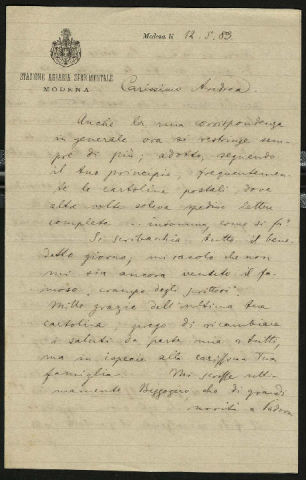 STAZIONE AGRARIA SPERIMENTALE
MODENA
Modena li 12. 5. 83.
Carissimo Andrea.
Anche la mia corrispondenza
in generale ora si restringe sem-
pre di più; adotto, seguendo
il tuo principio, frequentemen-
te le cartoline postali dove
altre volte soleva spedire lettere
complete — insomma, come si fa?
Si scribacchia tutto il bene-
detto giorno, miracolo che non
mi sia ancora venuto il fa-
moso „crampo degli scrittori".
Mille grazie dell'ultima tua
cartolina; prego di ricambiare
i saluti da parte mia a tutti,
ma in ispecie alla carissima tua
famiglia. Mi scrisse ulti-
mamente che di grandi
novità a Padova